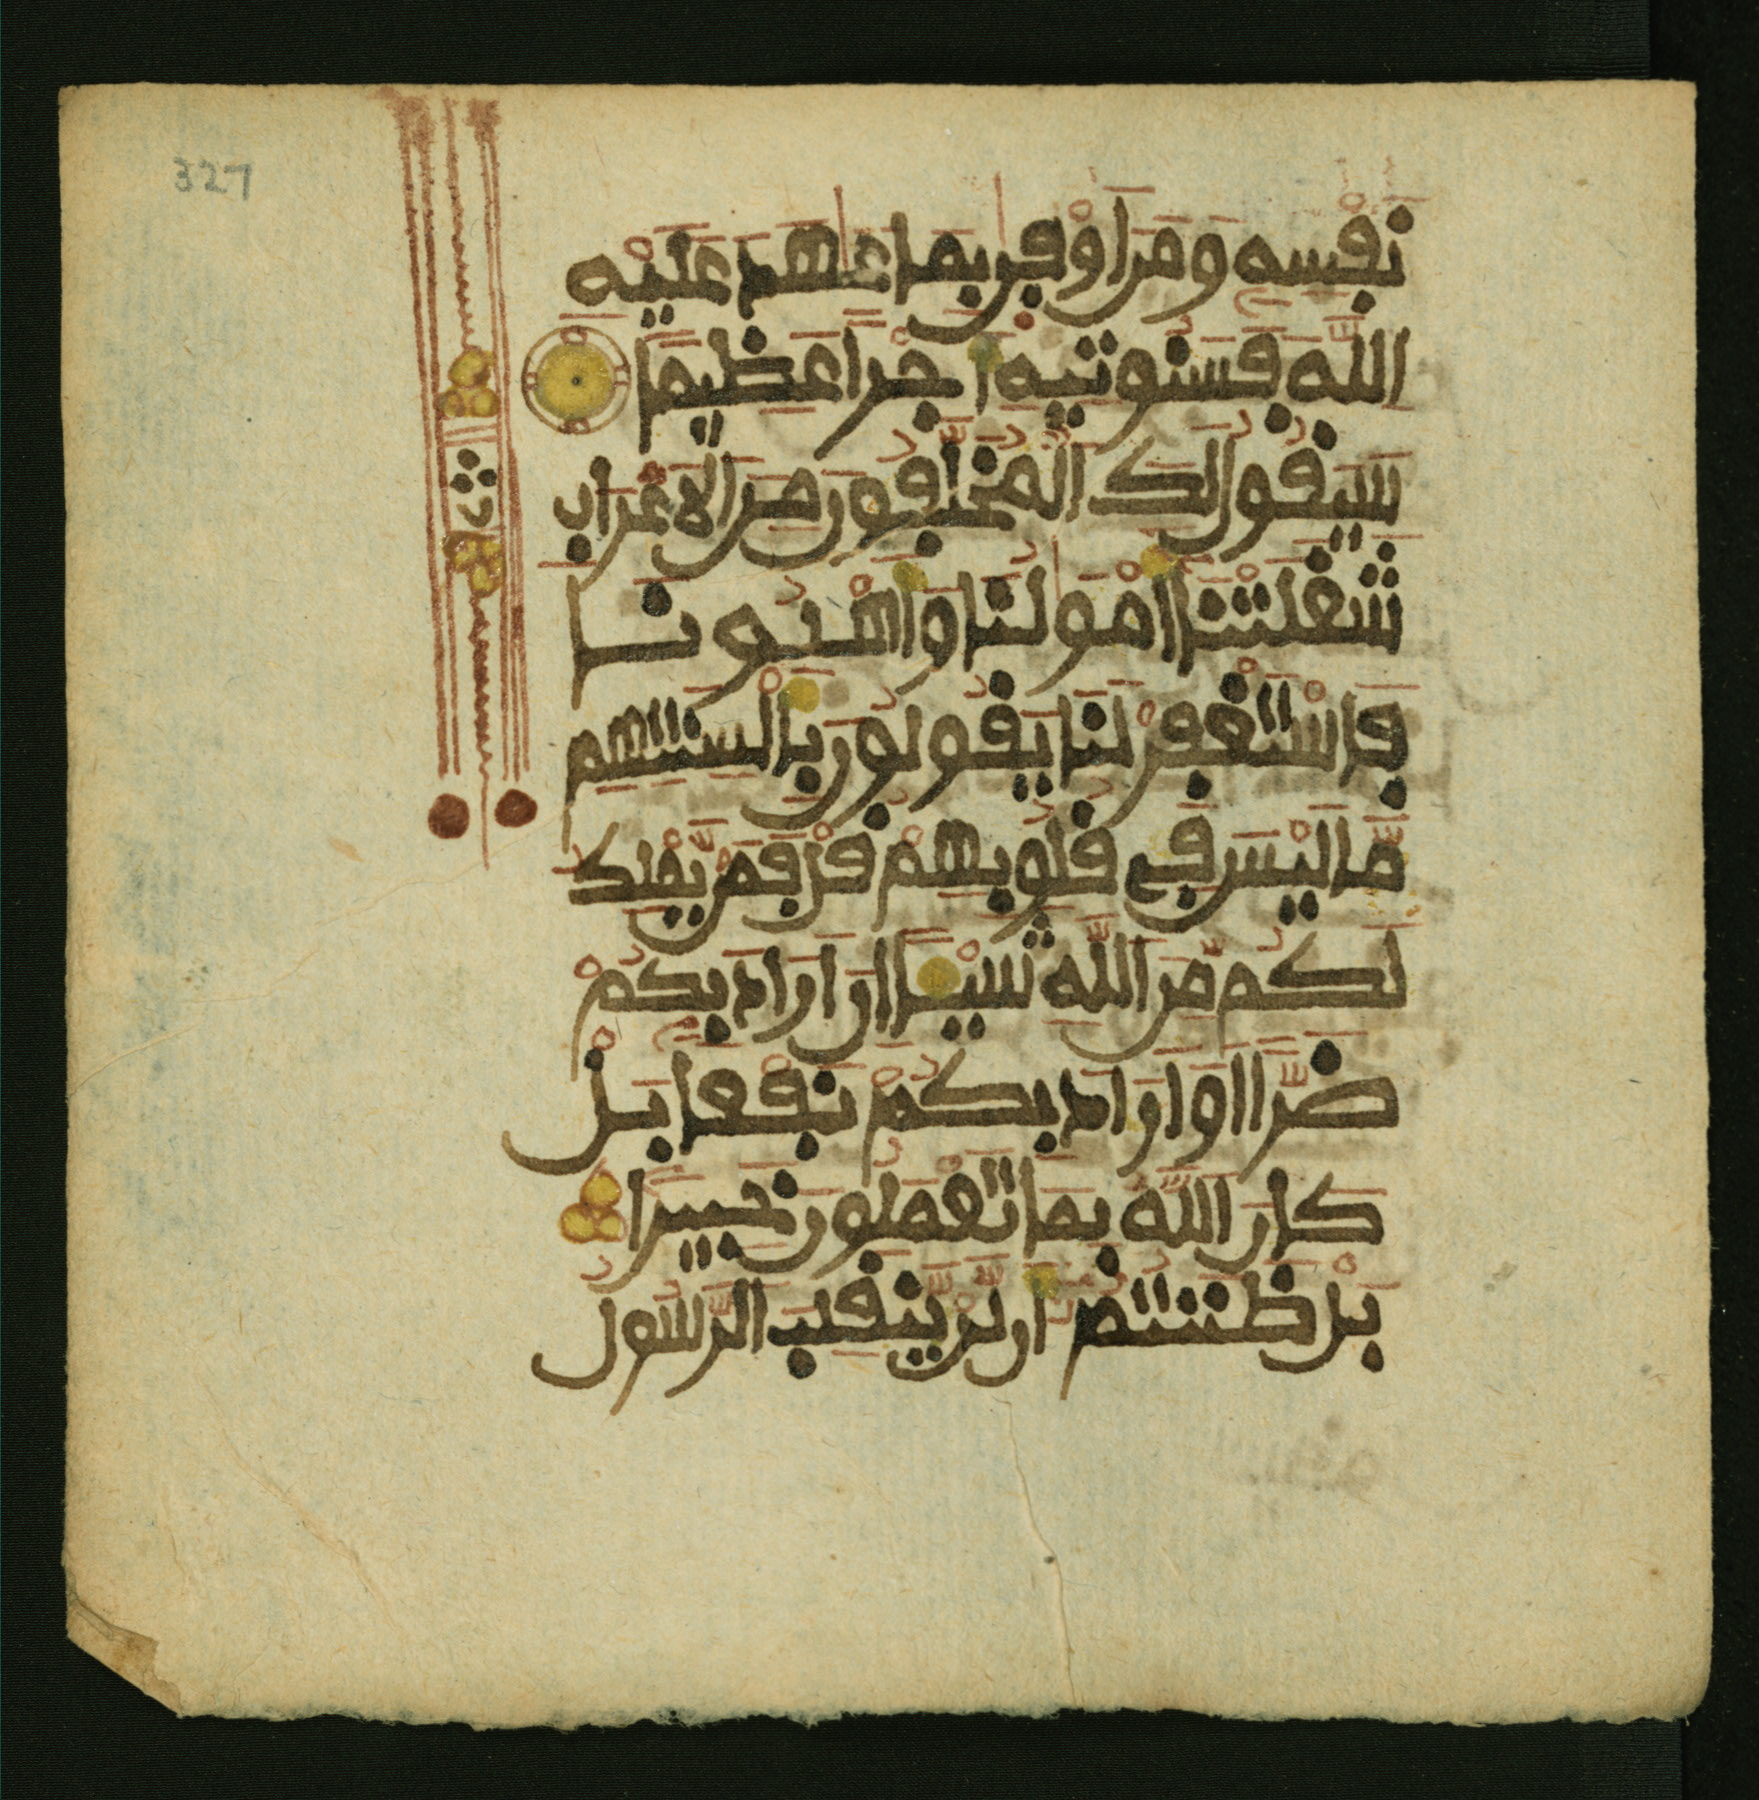 327
نَفْسِهِ وَمَنَ اوْفىٰ بِمَا عَٰهَدَ عَلَيْهِ
اللَّهَ فَسَنُوتِيهِ أَجْرًا عَظِيمًا
سَيَقُولُ لَكَ الْمُخَلَّفُونَ مِنَ الَاعْرَابِ
شَغَلَتْنَا أَمْوَٰلُنَا وَأَهْلُونَا
فَاسْتَغْفِرْ لَنَا يَقُولُونَ بِأَلْسِنَتِهِم
مَّا لَيْسَ فِي قُلُوبِهِمْ قُلْ فَمَنْ يَّمْلِكُ
لَكُم مِّنَ اللَّهِ شَيْئًا انَ ارَادَ بِكُمْ
ضَرًّا اوَ ارَادَ بِكُمْ نَفْعًا بَلْ
كَانَ اللَّهُ بِمَا تَعْمَلُونَ خَبِيرًا
بَلْ ظَنَنتُمُ أَن لَّنْ يَّنقَلِبَ الرَّسُولُ